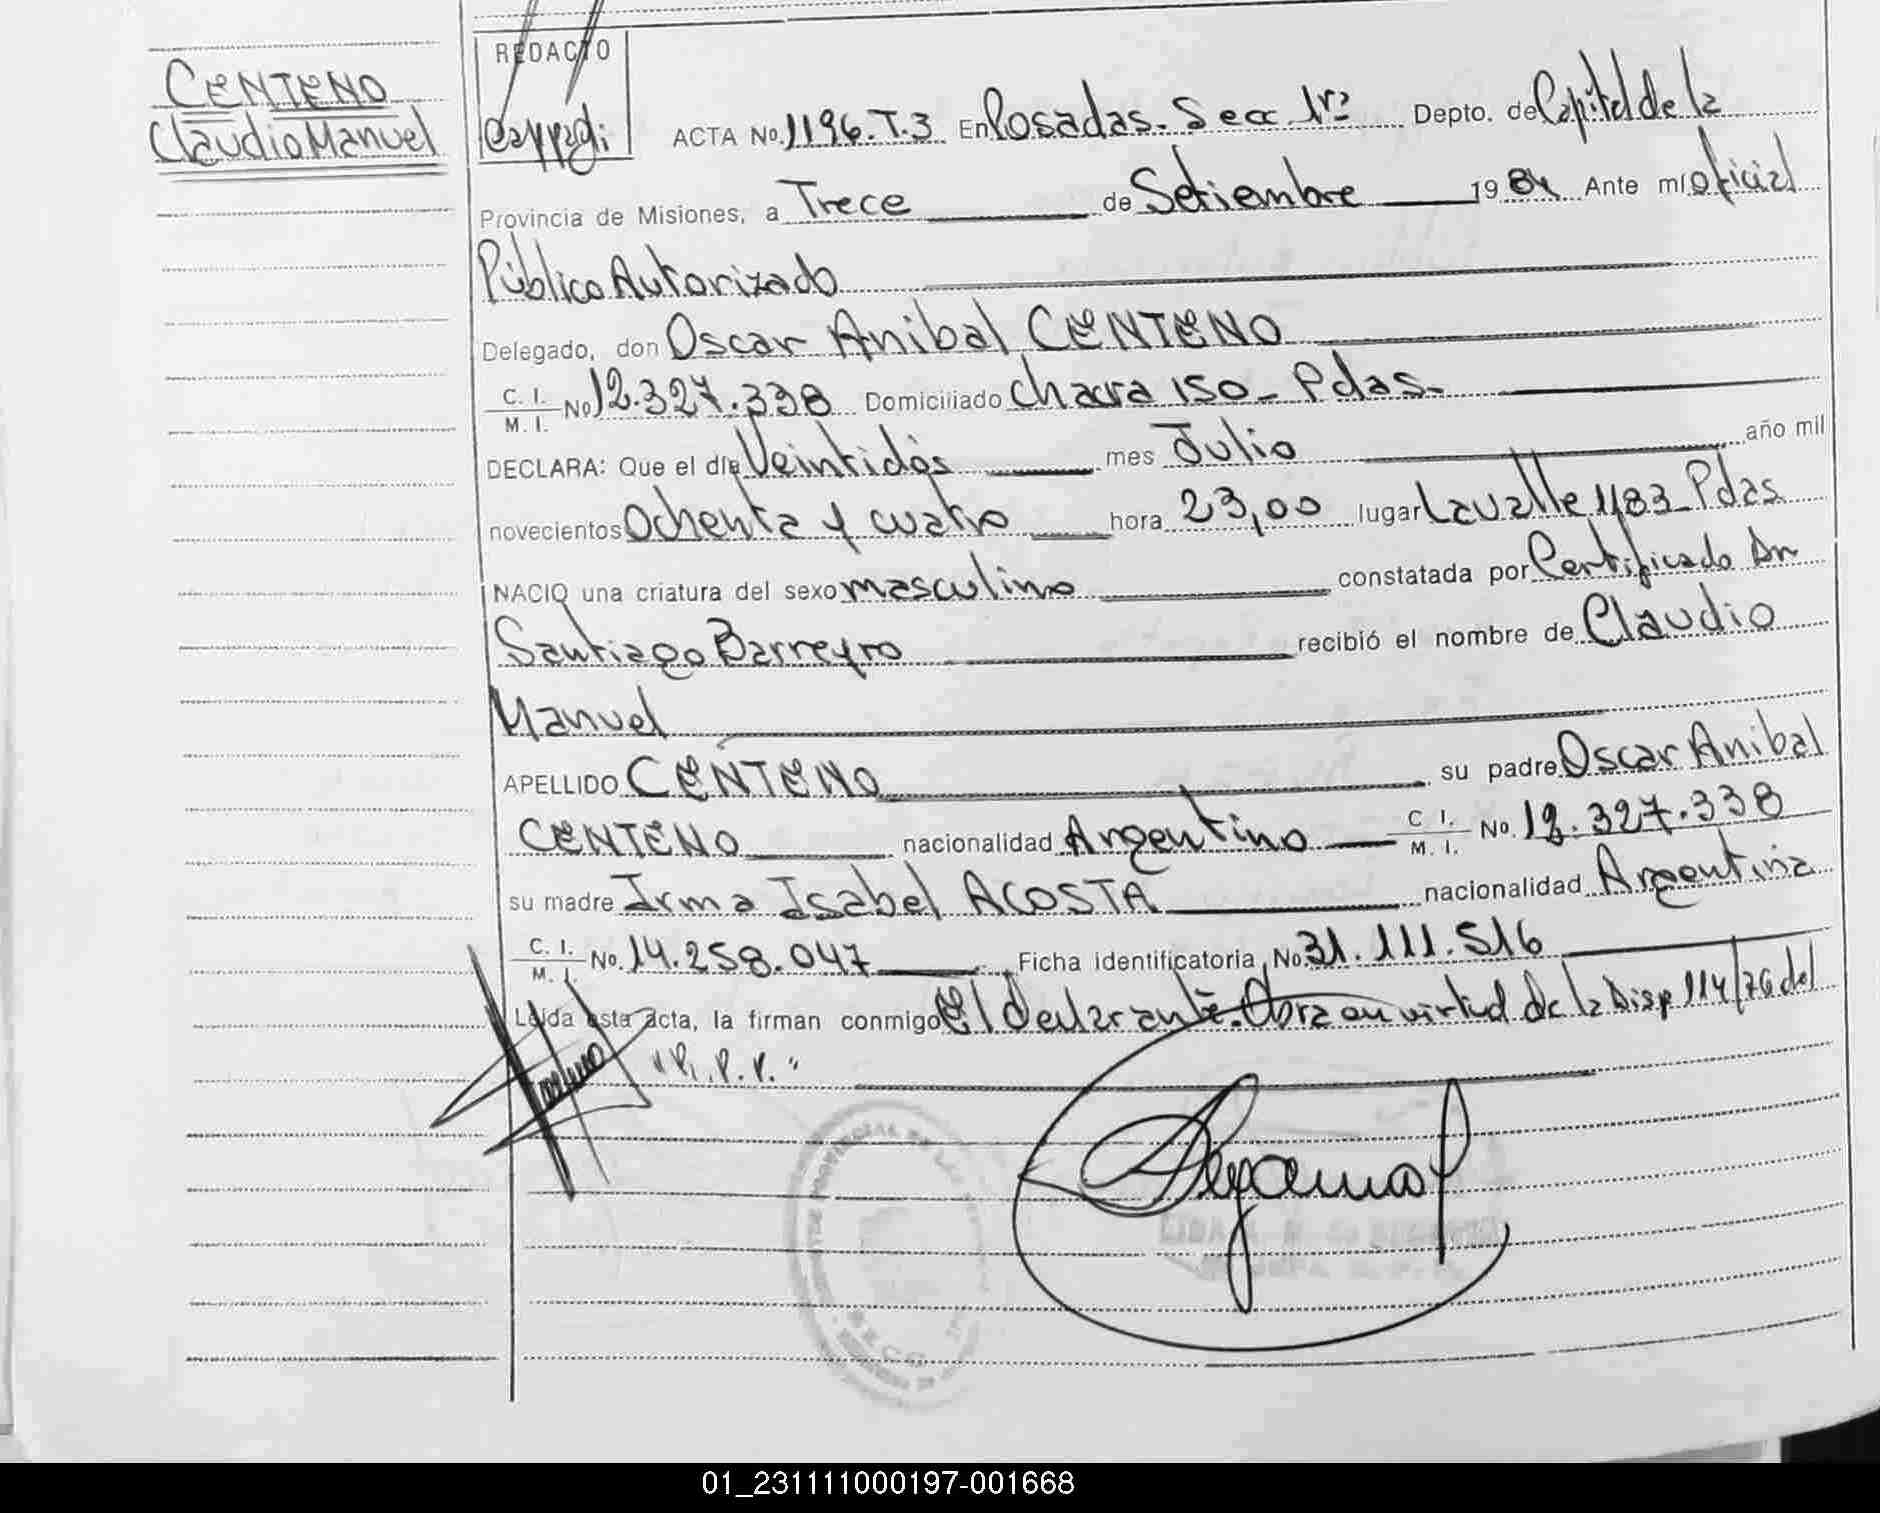 CENTENO
Claudio Manuel
REDACTO
ACTA No. 1196.T.3 En Posadas. Secc 1ra Depto. de Capital de la
Provincia de Misiones, a Trece de Setiembre 1984 Ante mí oficial
Público Autorizado
Delegado, don Oscar Anibal CENTENO
C. I. M. I. No 12.327.338 Domiciliado chacra 150_ Pdas-
DECLARA: Que el día Veintidós mes Julio año mil
novecientos Ochenta y cuatro hora 23,00 lugar Lavalle 1183_Pdas
NACIO una criatura del sexo masculino constatada por Certificado Dn
Santiago Barreyro recibió el nombre de Claudio
Manuel
APELLIDO CENTENO su padre Oscar Anibal
CENTENO nacionalidad Argentino C. I. M. I. No. 12.327.338
su madre Irma Isabel ACOSTA nacionalidad Argentina
C. I. M. I. No. 14.258.047 Ficha identificatoria No. 31.111.516
Leída esta acta, la firman conmigo El declarante. Obra en virtud de la Disp 114/76 del
"R.P.P."
01_231111000197-001668